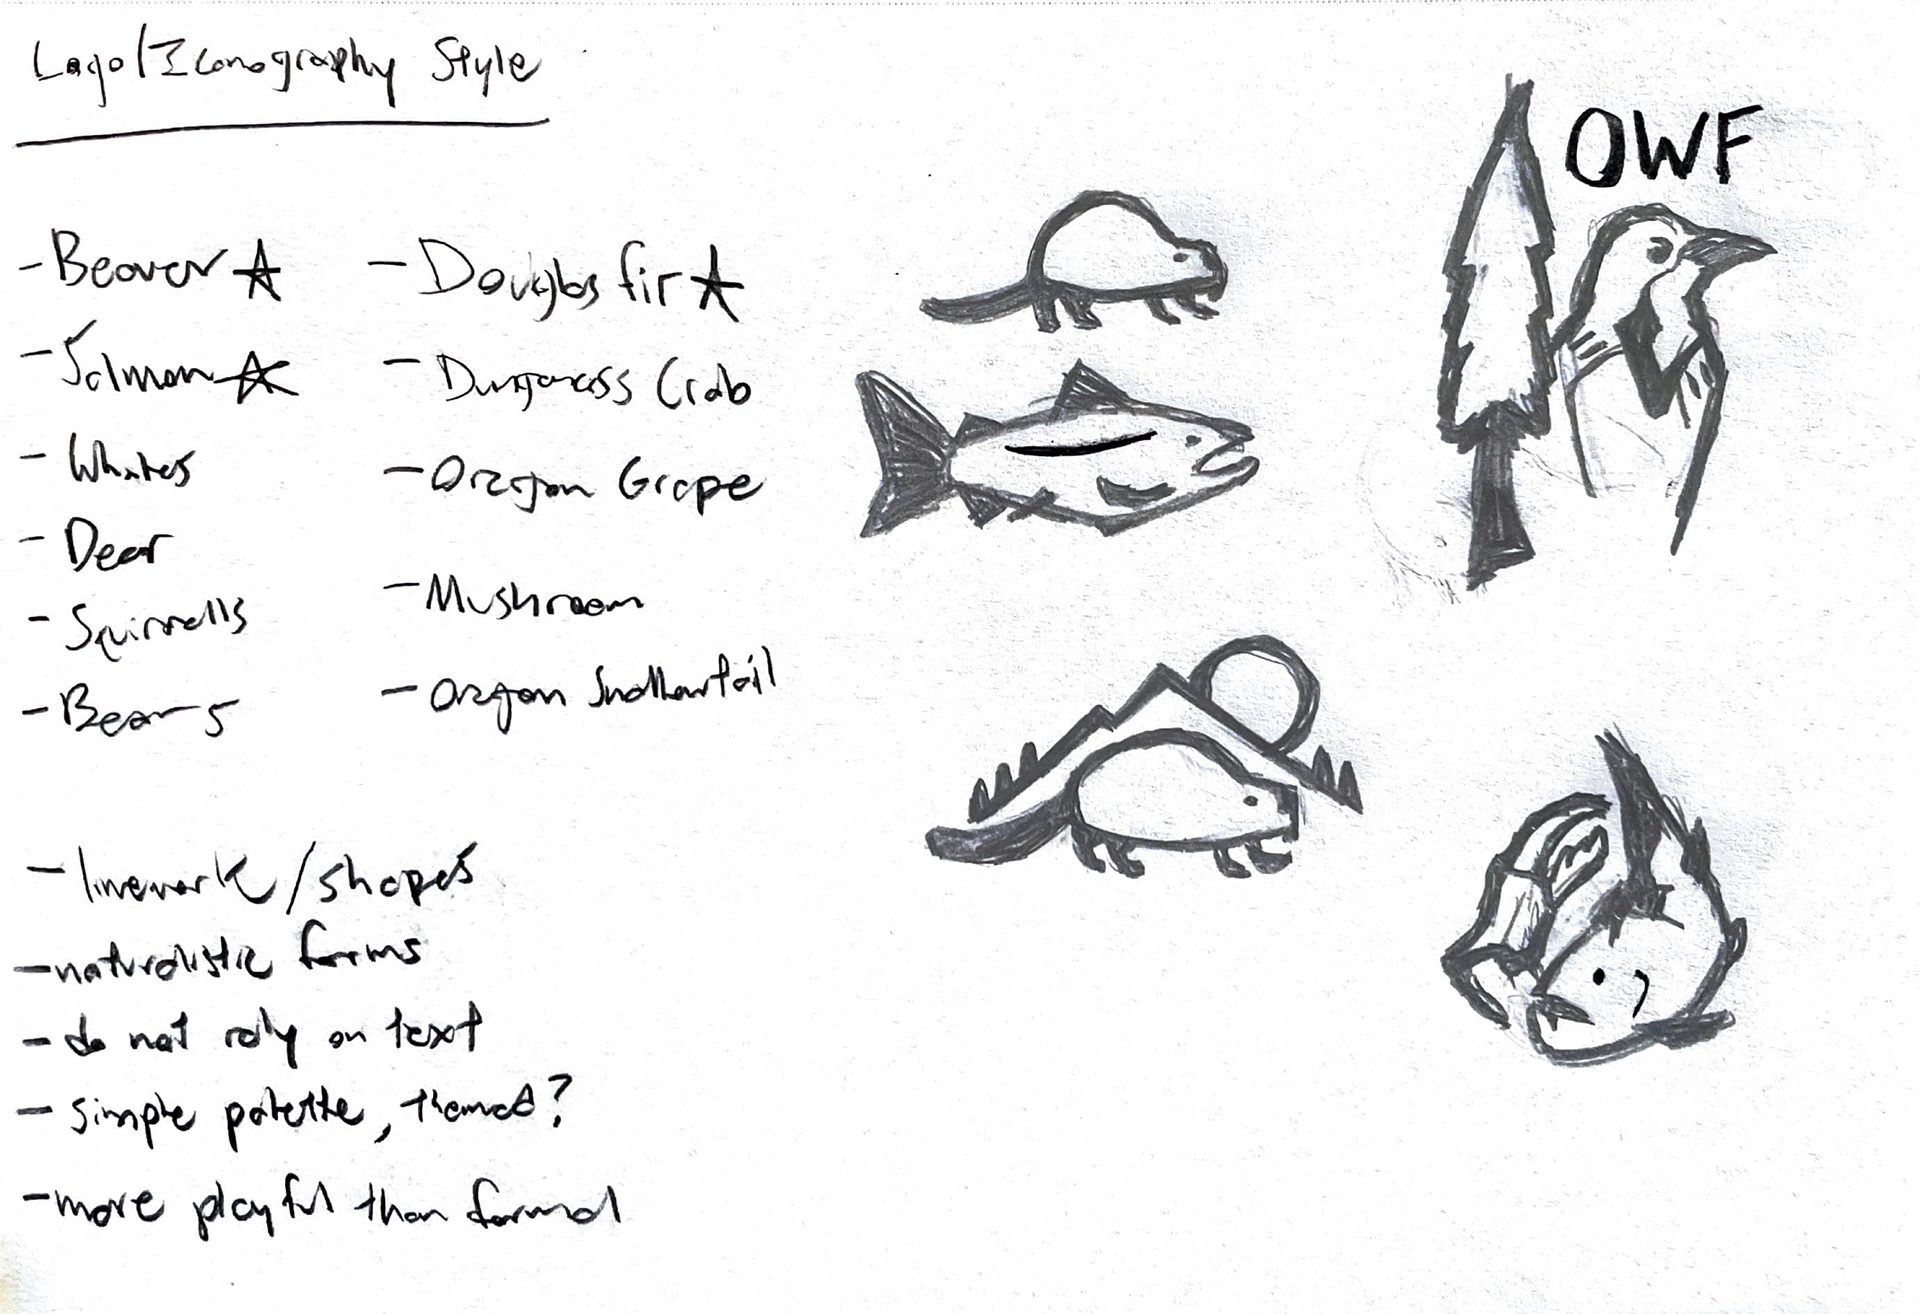 Logo/Iconography Style
- Beaver ☆
- Salmon ☆
- Whales
- Dear
- Squirrells
- Bears
- Douglas fir ☆
- Dungeness Crab
- Oregon Grape
- Mushroom
- Oregon Swallowtail
- linework/shapes
- naturalistic forms
- do not rely on text
- simple palette, themed?
- more playful than formal
OWF